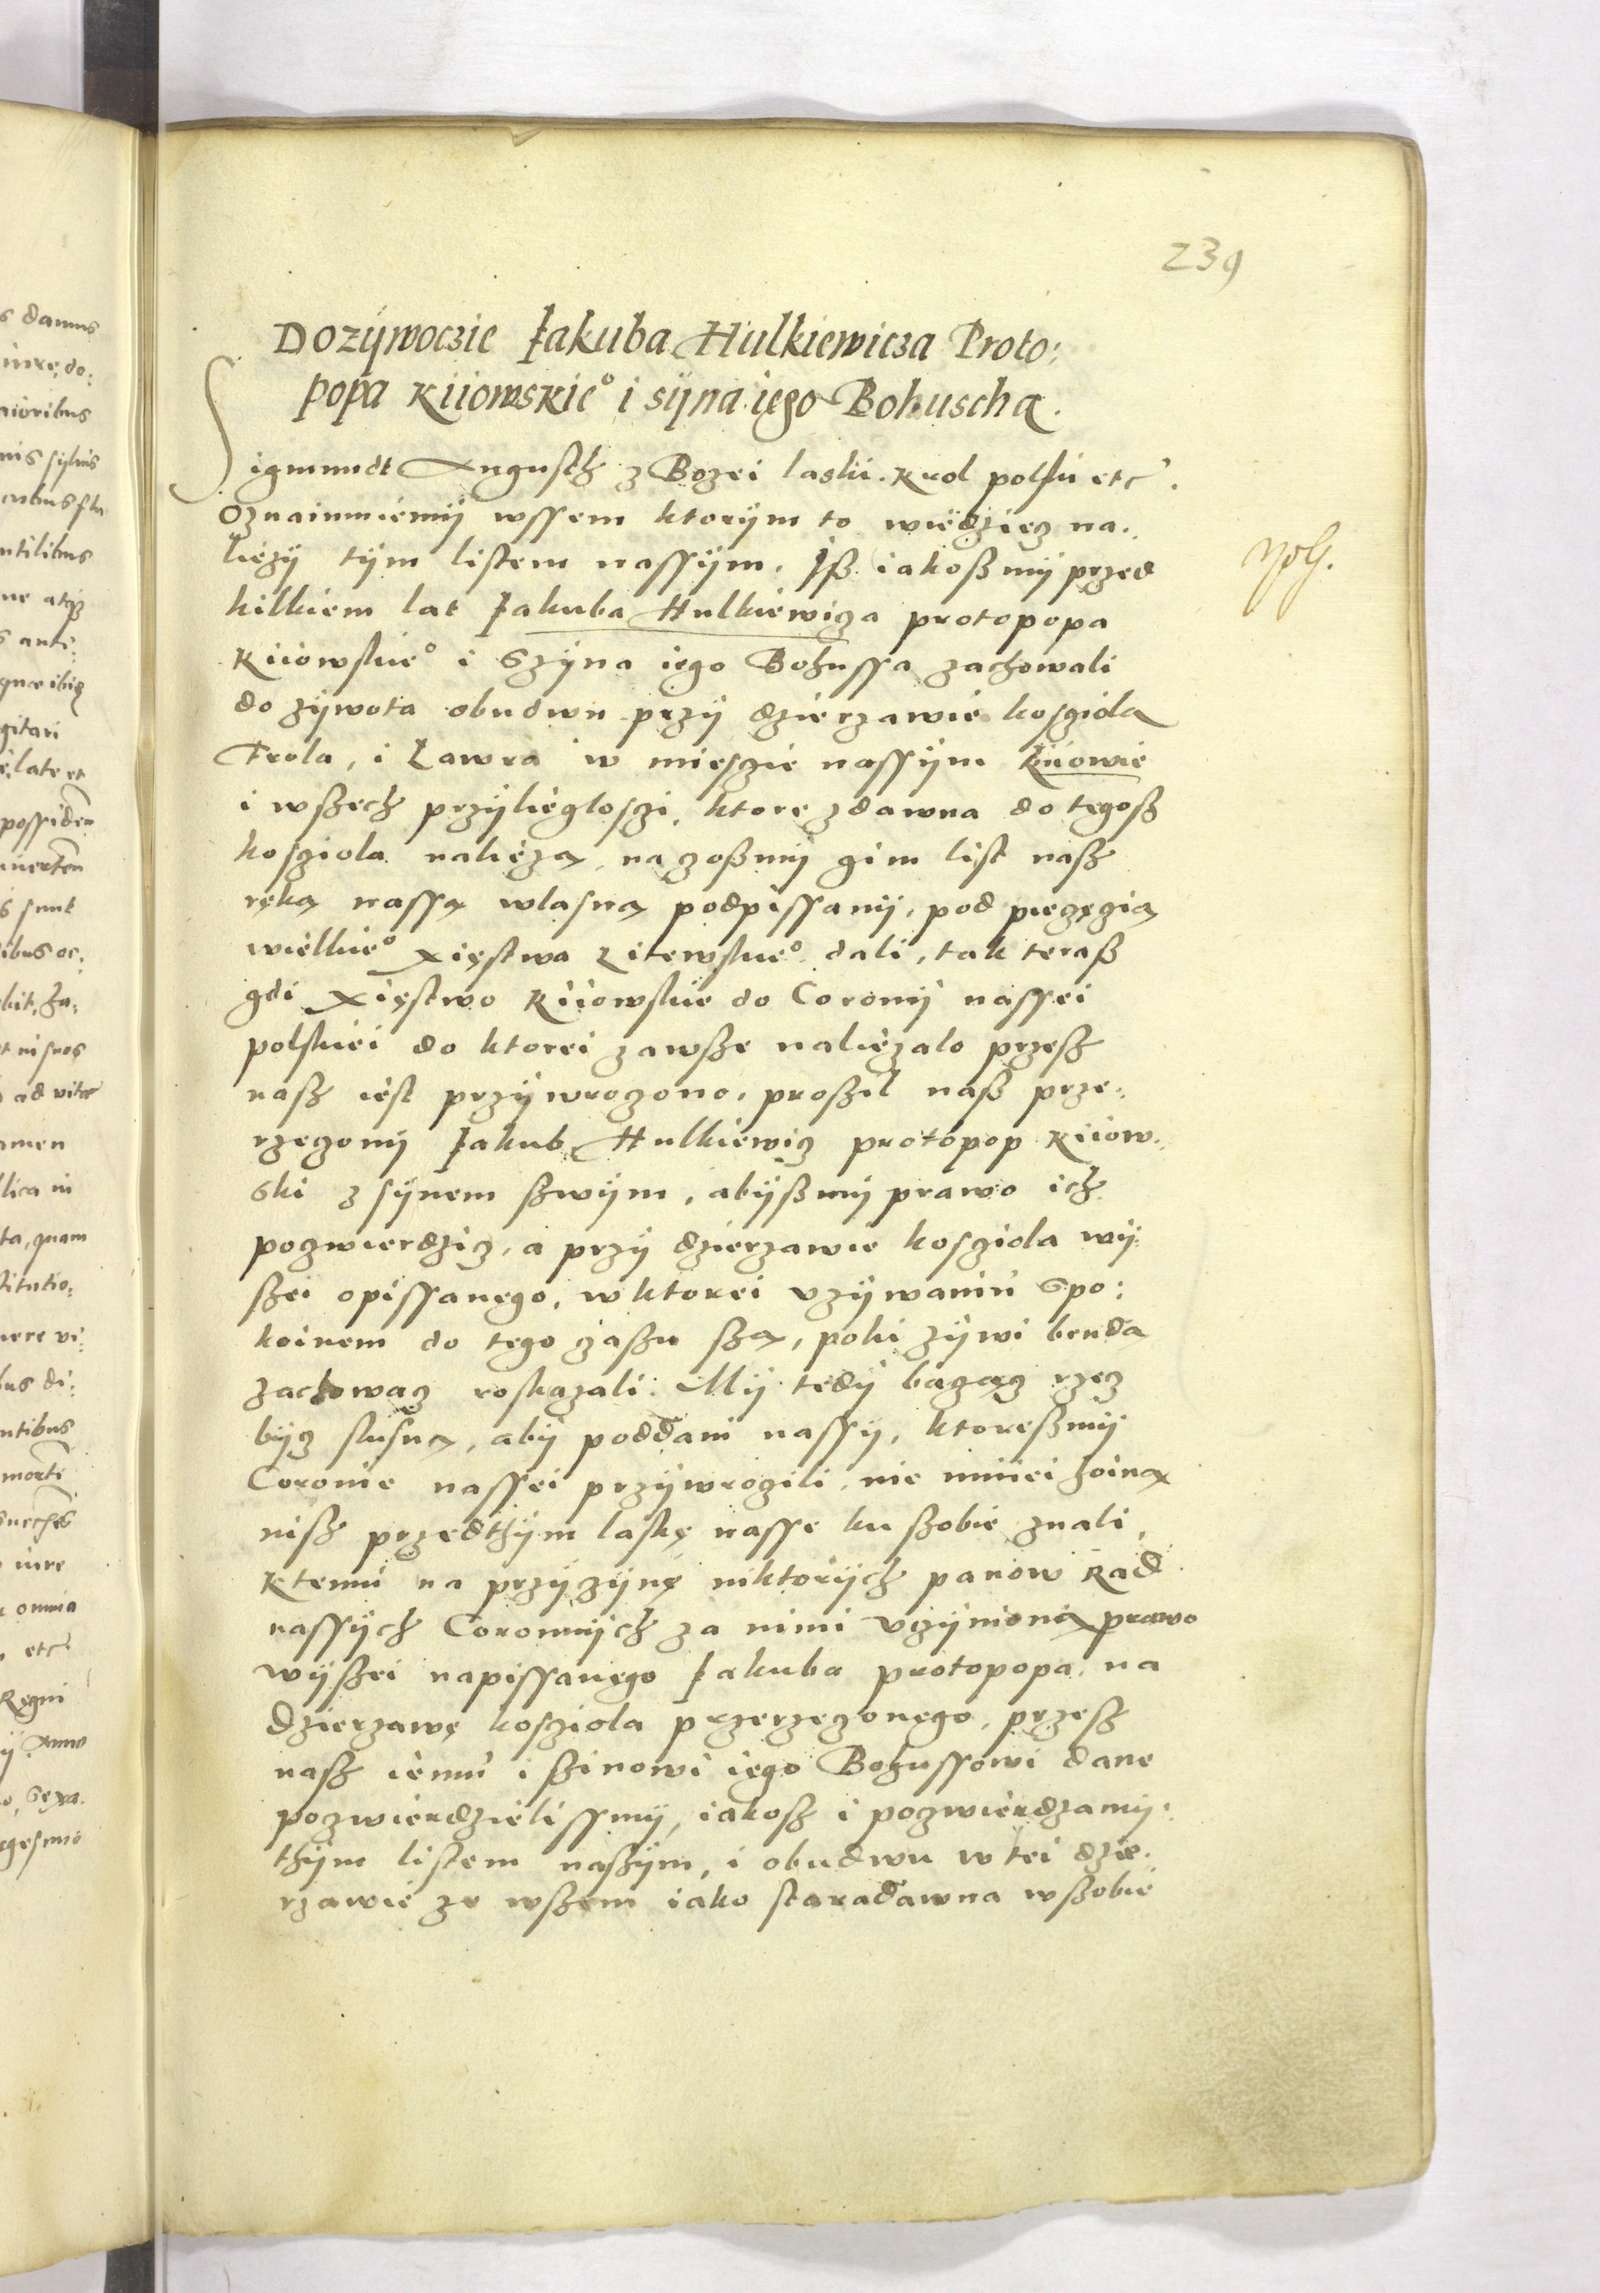 239
Dozÿwoczie Jakuba Hulkiewicza Proto:
popa Kiiowskie° i sÿna iego Bohuscha.
Sigmundt Augusth z Bozei laski. Krol polski etc.
Oznaimuiemÿ wssem ktorÿm to wiedziecz na-
liezÿ tÿm listem nassÿm. Jß iakoßmÿ przed
kilkiem lat Jakuba Hulkiewicza protopopa
Kiiowskie° i Szÿna iego Bohussa zachowali
do zÿwota obudwu przÿ dzierzawie kosciola
Frola, i Lawra w miescie nassÿm Kiiowie
i wszech przÿlieglosci, ktore zdawna do tegosz
kosciola nalieza, na czoßmÿ gim list nasz
ręką nassą wlasną podpissanÿ, pod pieczęcią
wielkie° xięstwa Litewskie° dali, tak teraß
gdi xięstwo Kiiowskie do Coronÿ nassei
polskiei do ktorei zawsze naliezalo przesz
nasz iest przÿwroczono, proszil naß prze-
rzeczonÿ Jakub Hulkiewicz protopop Kiiow-
ski z sÿnem szwÿm, abÿßmÿ prawo ich
poczwierdzicz, a przÿ dzierzawie kosciola wÿ-
szei opissanego, w ktorei vzÿwaniu spo:
koinem do tego czaszu szą, poki zÿwi benda
zachowacz roskazali. Mÿ tedÿ baczącz rzecz
bÿcz slusną, abÿ poddani nassÿ, ktoreszmÿ
Coronie nassei przÿwrocili, nie mniei hoiną
nisz przedthÿm laskę nasse ku szobie znali,
Ktemu na przÿczÿnę niktorÿch panow Rad
nassÿch Coronnÿch za nimi vczÿnioną prawo
wÿszei napissanego Jakuba protopopa, na
dzierzawę kosciola przerzeczonego, przesz
nasz iemu i szinowi iego Bohussowi dane
poczwierdzielissmÿ, iakosz i poczwierdzamÿ
thÿm listem naszÿm, i obudwu w tei dzie-
rzawie ze wszem iako staradawna wszobie